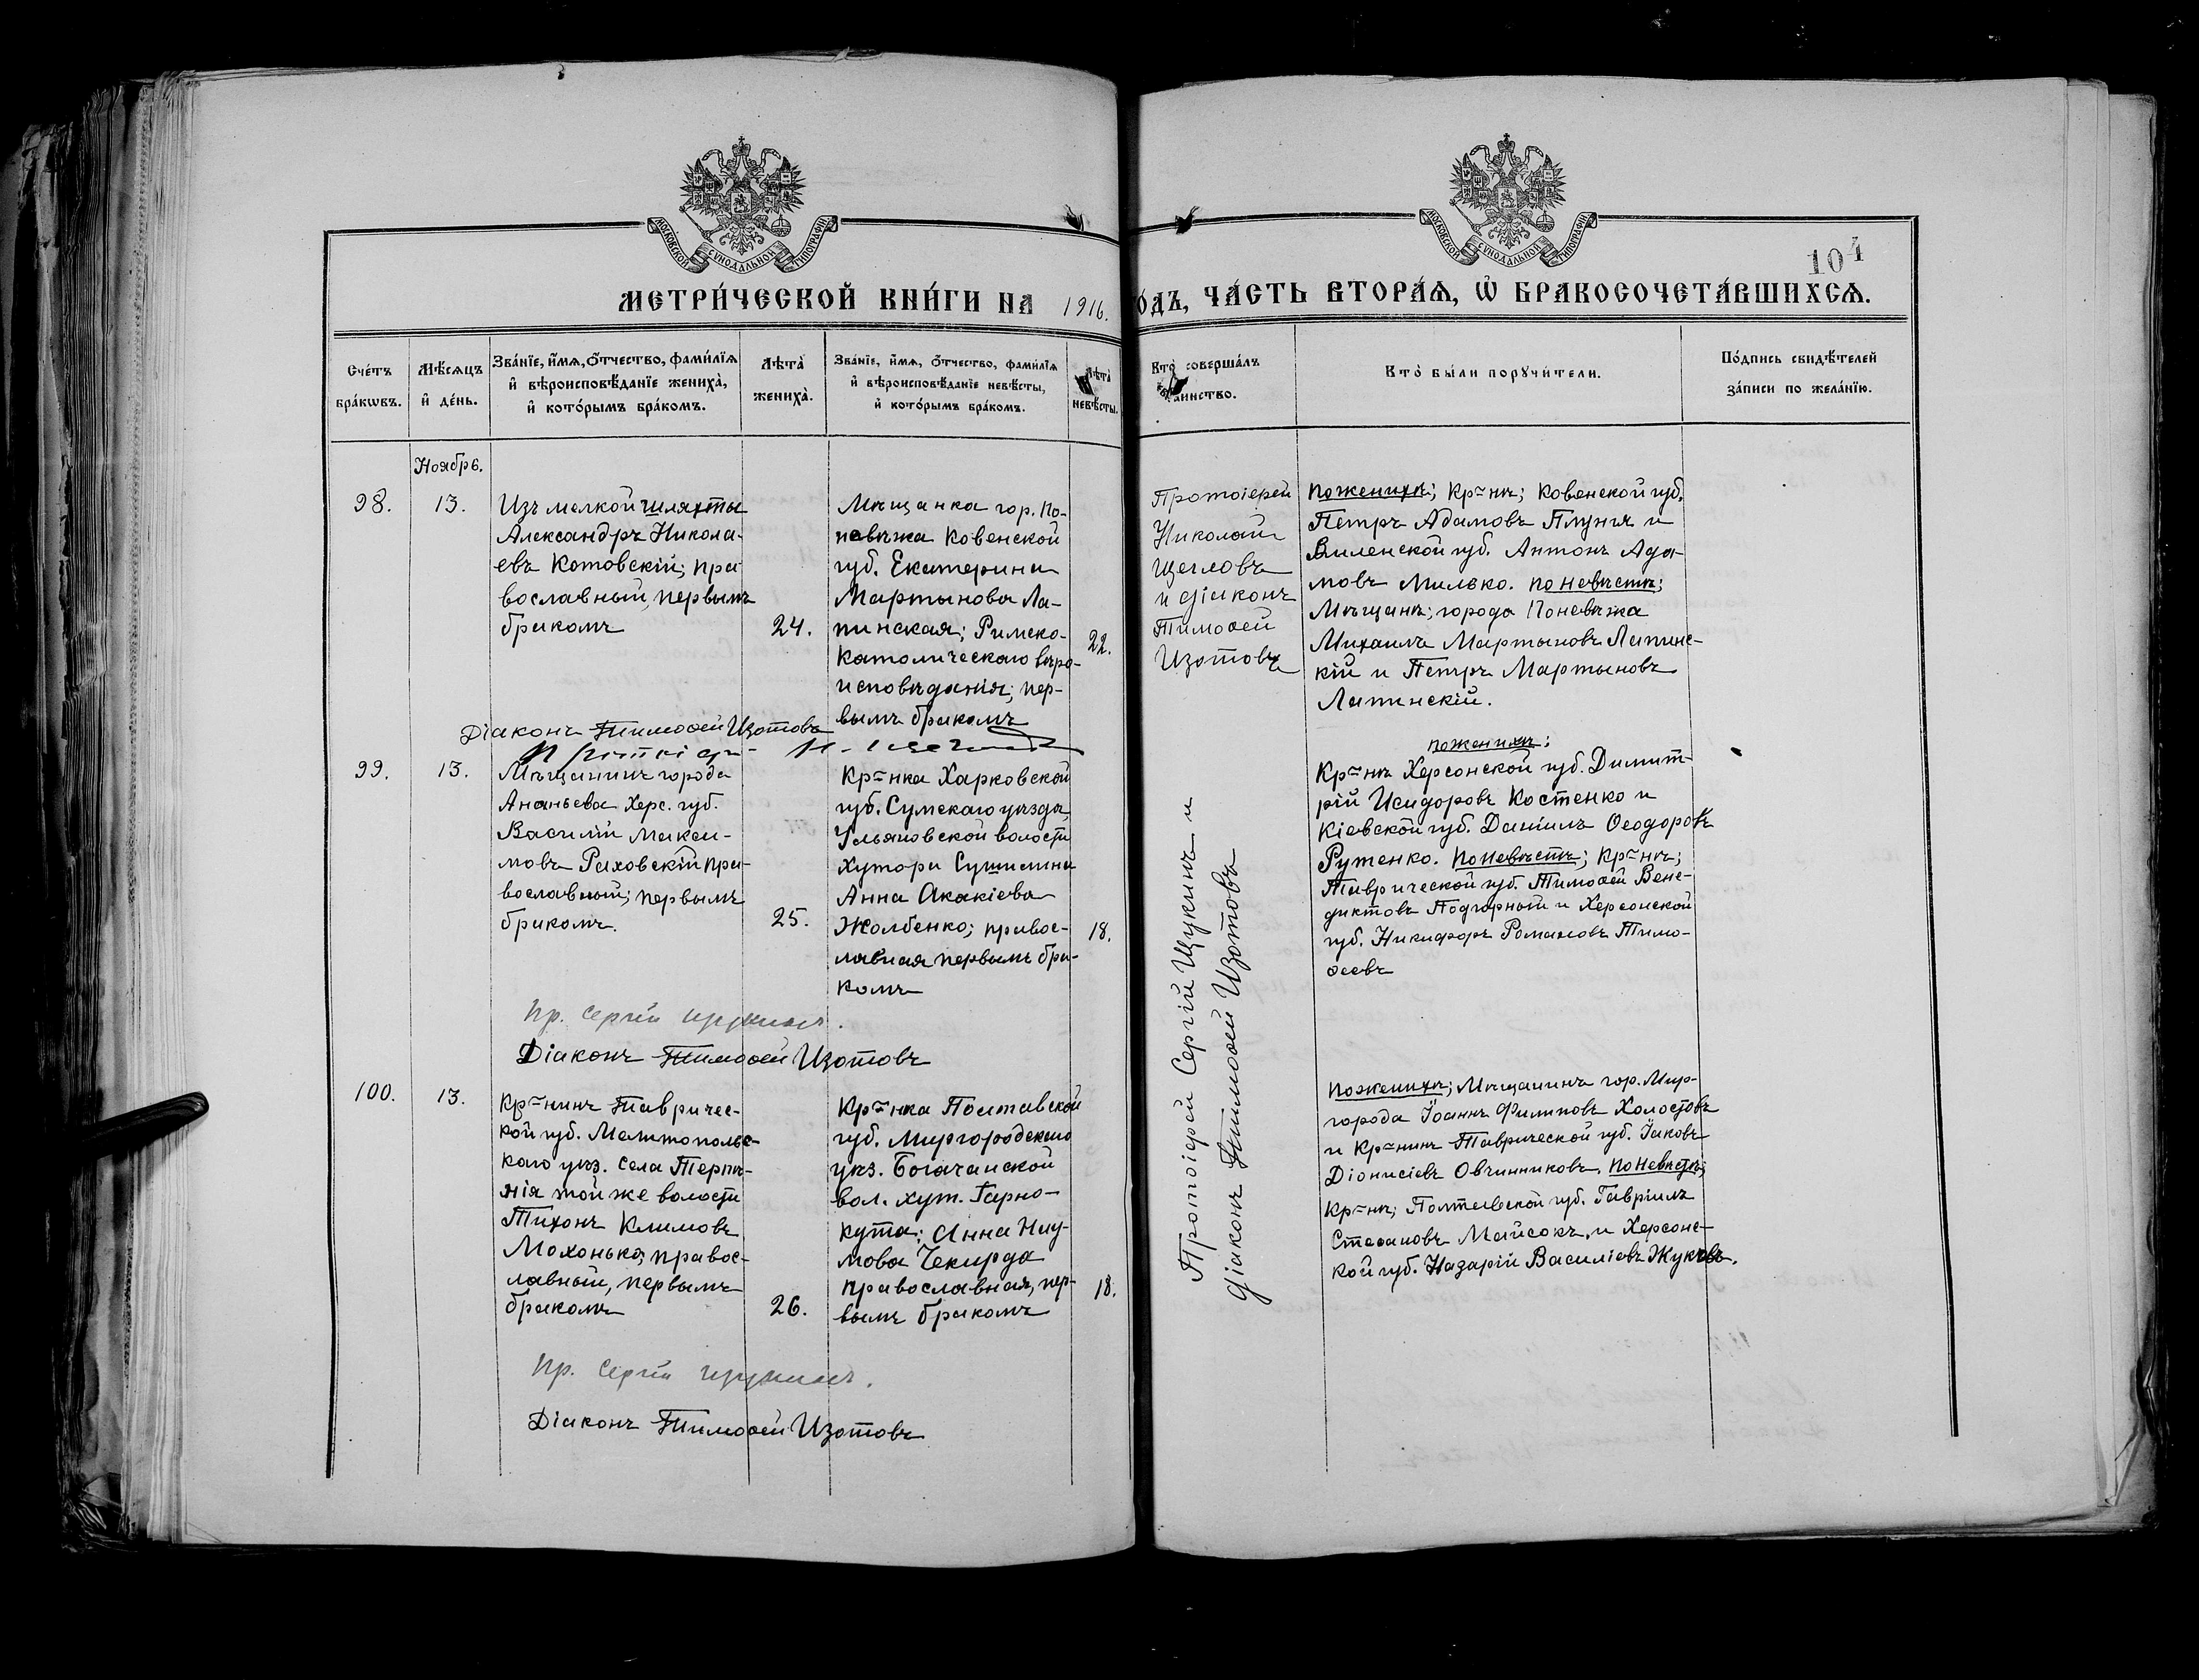 МОСКОВСКОЙ СУНОДАЛЬНОЙ ТИПОГРАФІИ
МОСКОВСКОЙ СУНОДАЛЬНОЙ ТИПОГРАФІИ
104
МЕТРИ́ЧЕСКОЙ КНИ́ГИ НА 1916. ОДЪ, ЧА́СТЬ ВТОРА́Ѧ, Ѡ БРАКОСОЧЕТА́ВШИХСѦ.
Сче́тъ
бра́кѡвъ.
Мѣ́сѧцъ
и҆ де́нь.
Зва́нїе, и҆́мѧ, ѻ҆́тчество, фами́лїѧ
и҆ вѣроисповѣ́данїе жениха̀,
и҆ кото́рымъ бра́комъ.
Лѣта̀
жениха̀.
Зва́нїе, и҆́мѧ, ѻ҆́тчество, фами́лїѧ
и҆ вѣроисповѣ́данїе невѣ́сты,
и҆ кото́рымъ бра́комъ.
Лѣта̀
невѣ́сты.
Кто̀ соверша́лъ
таинство.
Кто̀ бы́ли порꙋчи́тели.
По́дпись свидѣ́телей
за́писи по жела́нїю.
Ноябрь.
98.
13.
Изъ мелкой шляхты
Александръ Никола-
евъ Котовскій; пра-
вославный, первымъ
бракомъ
24.
Мѣщанка гор. По-
невѣжа Ковенской
губ. Екатерина
Мартынова Ла-
пинская; Римско-
католическаго вѣро-
исповѣданія; пер-
вымъ бракомъ
22.
Протоіерей
Николай
Щегловъ
и діаконъ
Тимоѳей
Изотовъ
По женихѣ; Кр=нѣ; Ковенской губ.
Петръ Адамовъ Плунгя и
Виленской губ. Антонъ Ада-
мовъ Милько. по невѣстѣ;
Мѣщанѣ; города Поневѣжа
Михаилъ Мартыновъ Лапинс-
кій и Петръ Мартыновъ
Лапинскій.
Діаконъ Тимоѳей Изотовъ
99.
13.
Мѣщанинъ города
Ананьева Херс. губ.
Василій Макси-
мовъ Раховскій пра-
вославный; первымъ
бракомъ.
25.
Кр=нка Харковской
губ. Сумскаго уѣзда,
Ульяновской волости
хутора Сушилина
Анна Акакіева
Жолбенко; правос-
лавная первымъ бра-
комъ
18.
Протоіерей Сергій Щукинъ и
діаконъ Тимоѳей Изотовъ
по женихѣ;
Кр=нѣ Херсонской губ. Димит-
рій Исидоровъ Костенко и
Кіевской губ. Даніилъ Ѳеодоровъ
Рутенко. По невѣстѣ; Кр=нѣ;
Таврической губ. Тимоѳей Вене-
диктовъ Подгорный и Херсонской
губ. Никифоръ Романовъ Тимо-
ѳеевъ
Пр. Сергій Щукинъ.
Діаконъ Тимоѳей Изотовъ
100.
13.
Кр=нинъ Тавричес-
кой губ. Мелитопольс-
каго уѣз. села Терпѣ-
нія той же волости
Тихонъ Климовъ
Мохонько; правос-
лавный, первымъ
бракомъ
26.
Кр=нка Полтавской
губ. Миргородскаго
уѣз. Богачанской
вол. хут. Гарно-
кута; Анна Нау-
мова Чекирда
православная, пер-
вымъ бракомъ
18.
По женихѣ; Мѣщанинъ гор. Мир-
города Іоаннъ Филиповъ Холостовъ
и Кр=нинъ Таврической губ. Іаковъ
Діонисіевъ Овчинниковъ. По невѣстѣ;
Кр=нѣ; Полтавской губ. Гавріилъ
Стефановъ Майсокъ, и Херсонс-
кой губ. Назарій Василіевъ Жуковъ.
Пр. Сергій Щукинъ.
Діаконъ Тимоѳей Изотовъ